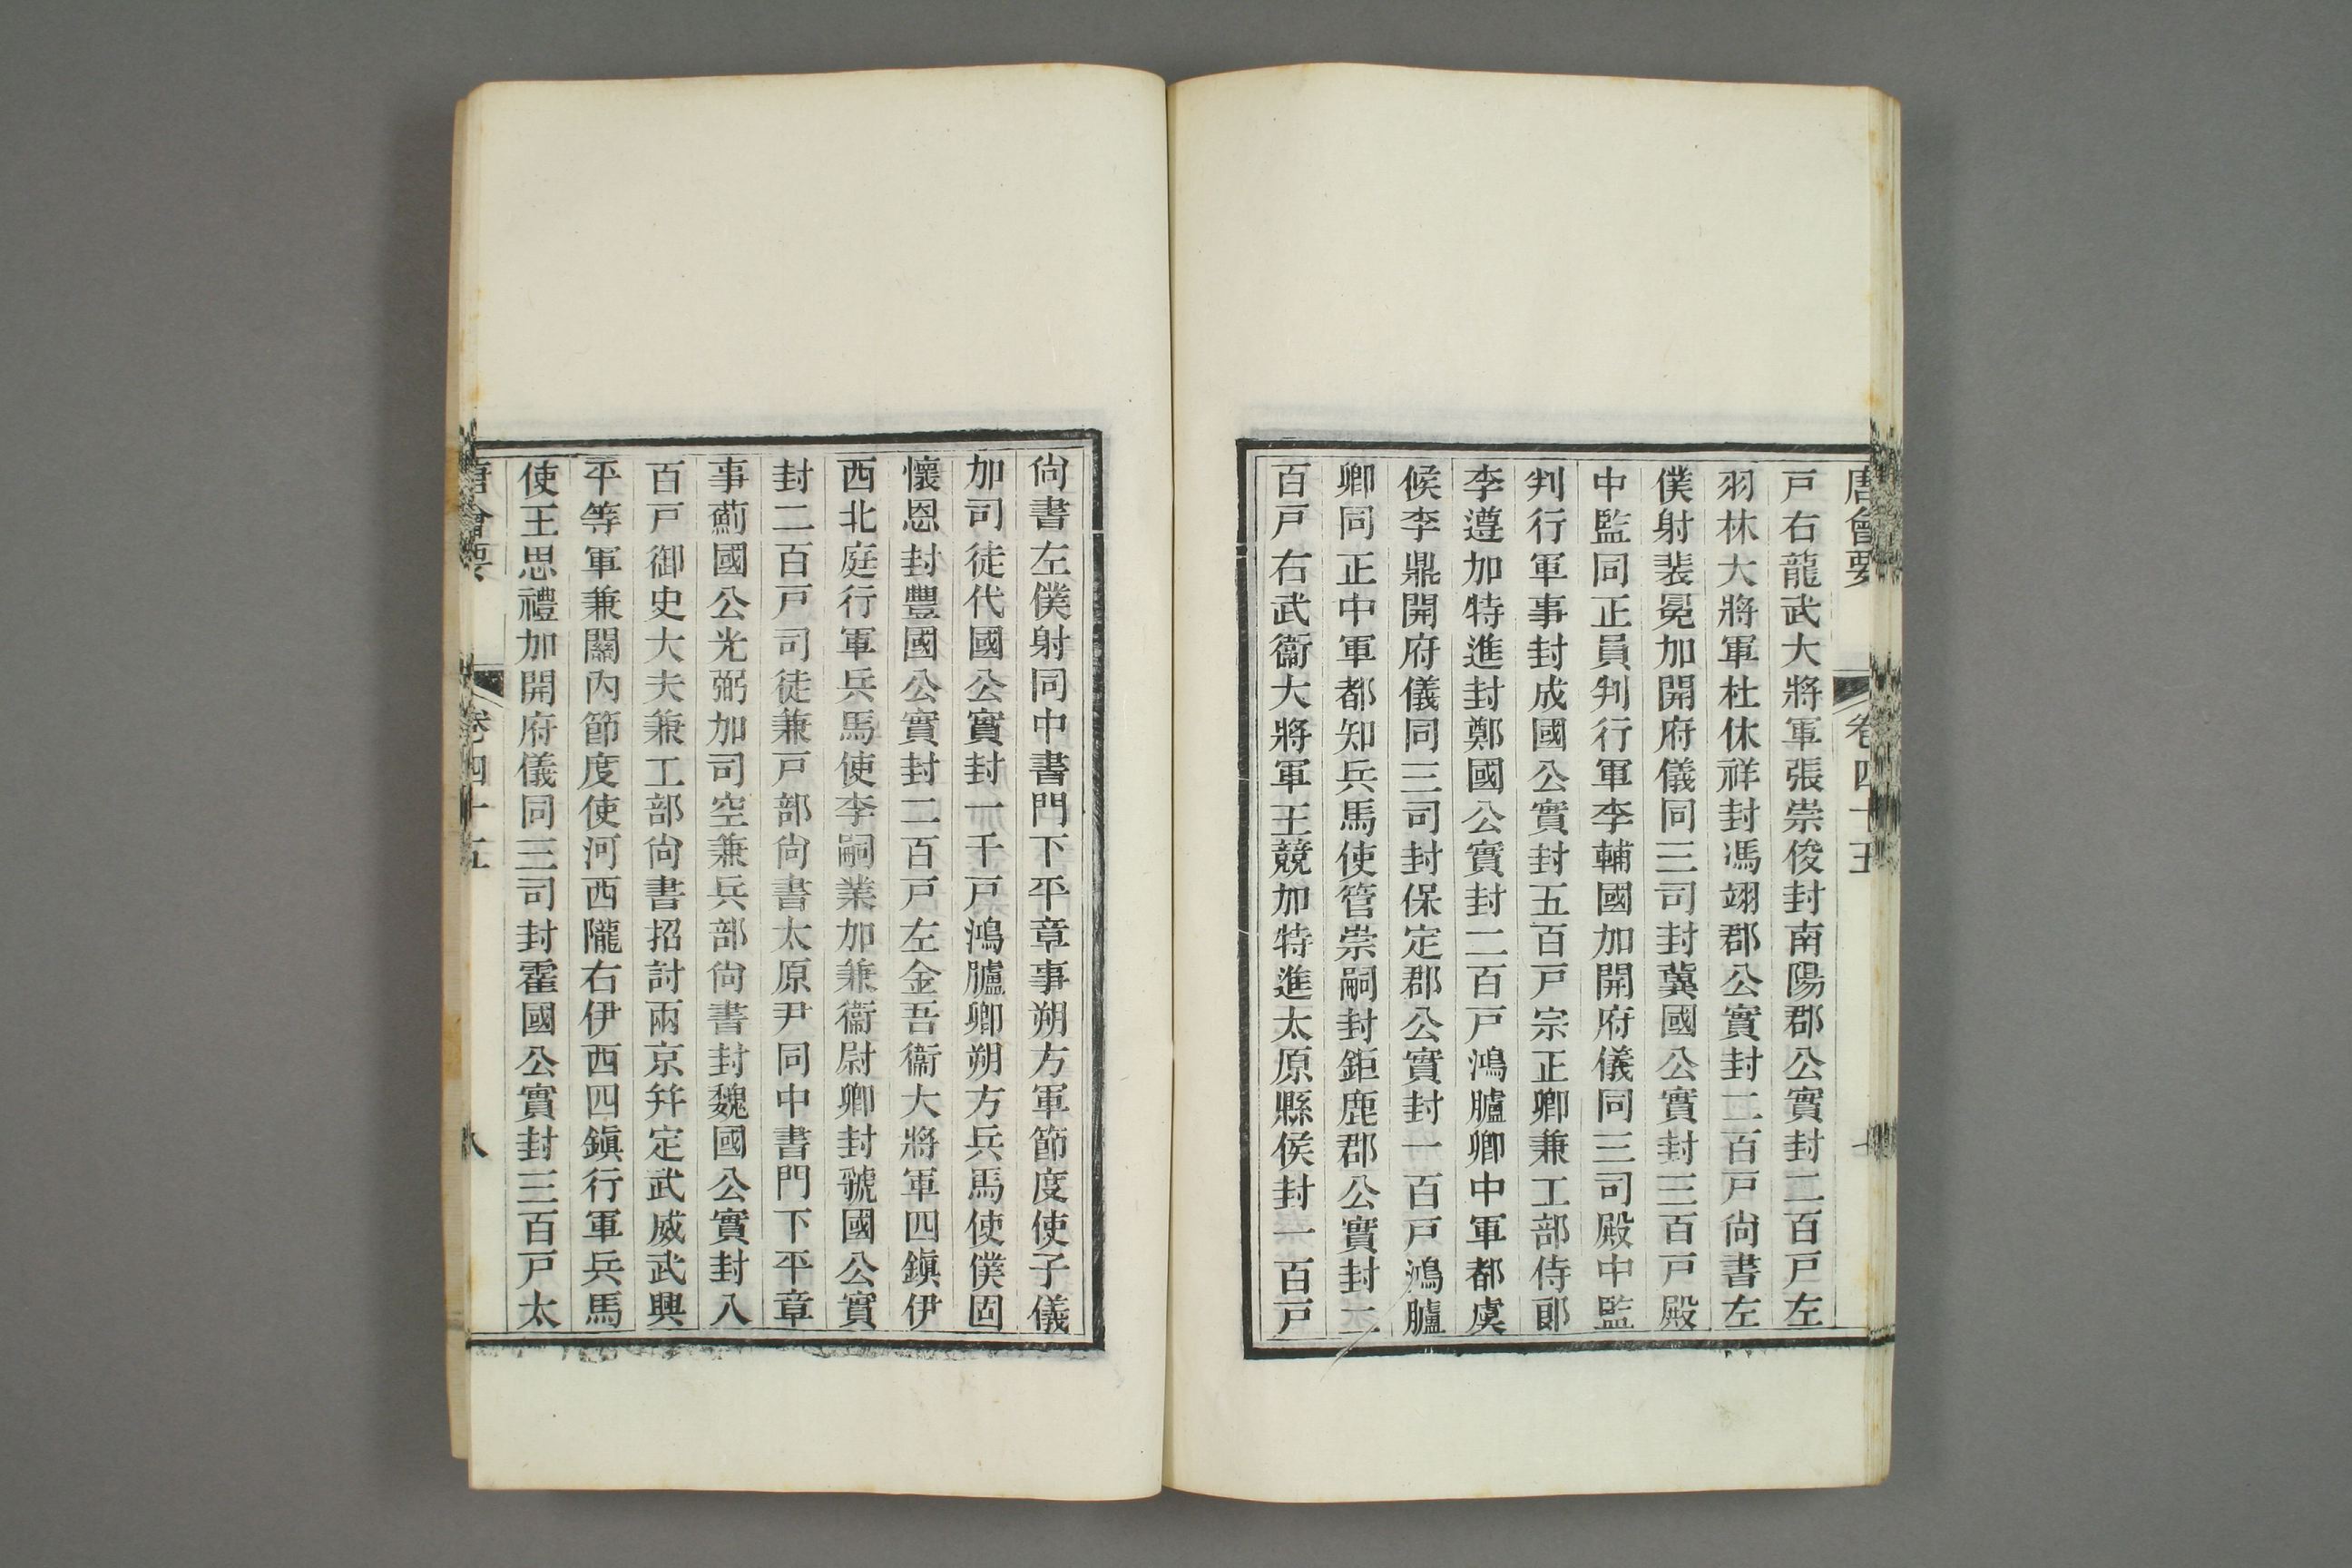 唐會要 卷四十五 七
戸右龍武大將軍張崇俊封南陽郡公實封二百戸左
羽林大將軍杜休祥封馮翊郡公實封二百戸尙書左
僕射裴冕加開府儀同三司封冀國公實封三百戸殿
中監同正員判行軍李輔國加開府儀同三司殿中監
判行軍事封成國公實封五百戸宗正卿兼工部侍郎
李遵加特進封鄭國公實封二百戸鴻臚卿中軍都虞
候李鼎開府儀同三司封保定郡公實封一百戸鴻臚
卿同正中軍都知兵馬使管崇嗣封鉅鹿郡公實封二
百戸右武衞大將軍王競加特進太原縣侯封一百戸
尙書左僕射同中書門下平章事朔方軍節度使子儀
加司徒代國公實封一千戸鴻臚卿朔方兵馬使僕固
懷恩封豐國公實封二百戸左金吾衞大將軍四鎭伊
西北庭行軍兵馬使李嗣業加兼衞尉卿封虢國公實
封二百戸司徒兼戸部尙書太原尹同中書門下平章
事薊國公光弼加司空兼兵部尙書封魏國公實封八
百戸御史大夫兼工部尙書招討兩京幷定武威武興
平等軍兼關內節度使河西隴右伊西四鎭行軍兵馬
使王思禮加開府儀同三司封霍國公實封三百戸太
唐會要 卷四十五 八